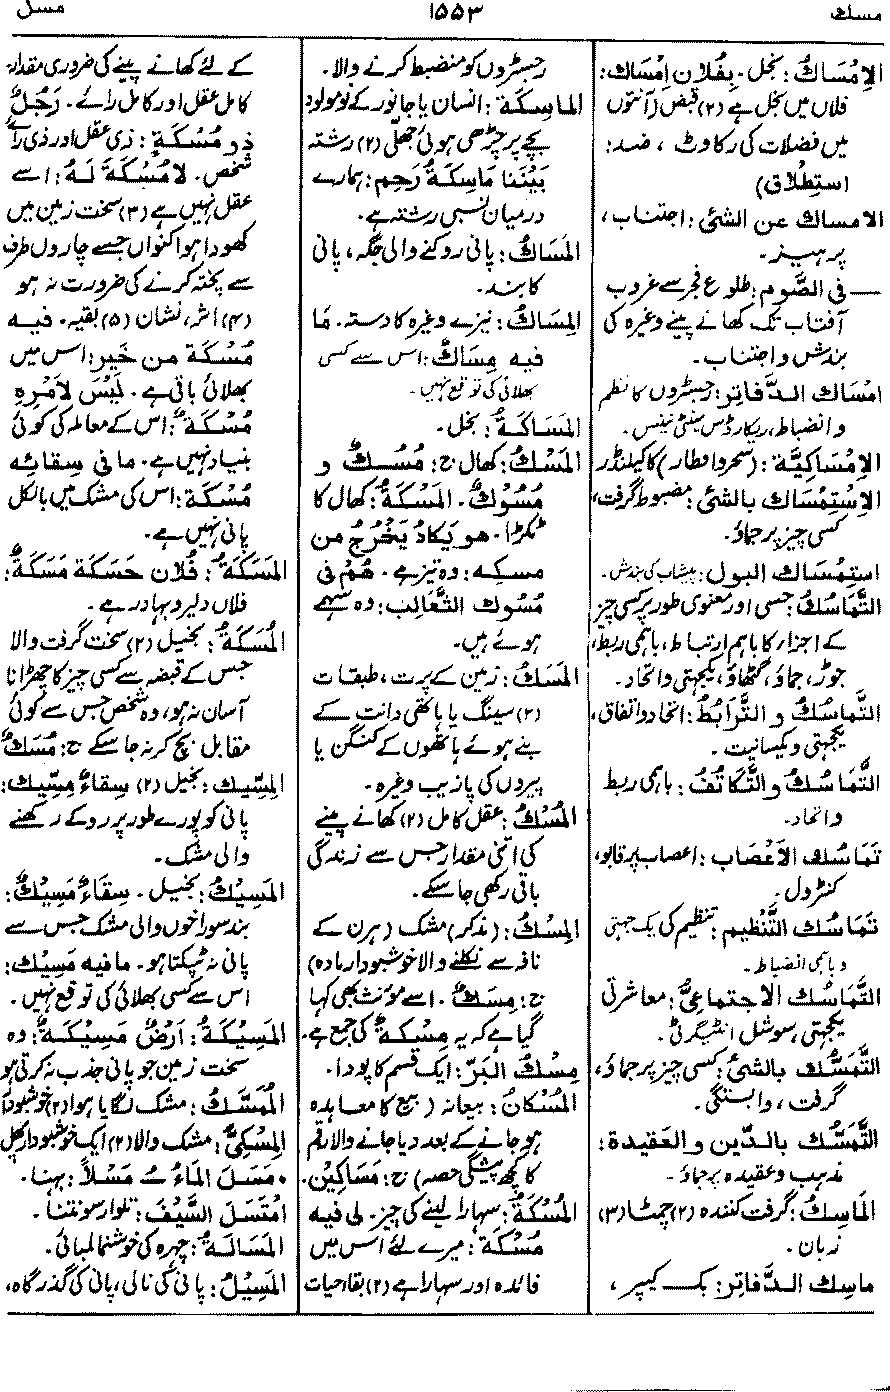 مسك
۱۵۵۳
مسل
الإِمْسَاكُ: بخل۔ بِفُلَانٍ إِمْسَاكٌ:
فلاں میں بخل ہے (۲) قبض (آنتوں
میں فضلات کی رکاوٹ ، ضد:
استِطْلَاق)
الامساك عن الشئ: اجتناب،
پرہیز۔
— فی الصَّوم: طلوع فجر سے غروب
آفتاب تک کھانے پینے وغیرہ کی
بندش و اجتناب۔
امْسَاك الدَّفاتِر: رجسٹروں کا نظم
و انضباط، ریکارڈس مینٹی نینس۔
الإِمْسَاكِيَّة: (سحر و افطار) کا کیلنڈر
الاسْتِمْسَاك بالشئ: مضبوط گرفت،
کسی چیز پر جماؤ۔
استِمْسَاك البول: پیشاب کی بندش۔
التَّمَاسُكُ: حسی اور معنوی طور پر کسی چیز
کے اجزاء کا باہم ارتباط، باہمی ربط،
جوڑ، جماؤ، گٹھاؤ، یکجہتی و اتحاد۔
التَّمَاسُكُ و التَّرَابُطُ: اتحاد و اتفاق،
یکجہتی و یکسانیت۔
التَّمَاسُكُ و التَّكَاتُفُ: باہمی ربط
و اتحاد۔
تَمَاسُك الأَعْصَاب: اعصاب پر قابو،
کنٹرول۔
تَمَاسُك التَّنْظِيم: تنظیم کی یک جہتی
و باہمی انضباط۔
التَّمَاسُك الاجتِمَاعِيُّ: معاشرتی
یکجہتی، سوشل انٹیگرٹی۔
التَّمَسُّك بالشئ: کسی چیز پر جماؤ،
گرفت ، وابستگی۔
التَّمَسُّك بالدِّين و العَقيدة:
مذہب و عقیدہ پر جماؤ۔
المَاسِكُ: گرفت کنندہ (۲) چمٹا (۳)
زبان۔
ماسِك الدَّفاتر: بک کیپر،
رجسٹروں کو منضبط کرنے والا۔
الماسِكَة: انسان یا جانور کے نومولود
بچے پر چڑھی ہوئی جھلّی (۲) رشتہ
بَيْنَنَا مَاسِكَةُ رَحِمٍ: ہمارے
درمیان نسبی رشتہ ہے۔
المَسَاكُ: پانی روکنے والی جگہ، پانی
کا بند۔
المِسَاكُ: نیزے وغیرہ کا دستہ۔ مَا
فيه مِسَاكٌ: اس سے کسی
بھلائی کی توقع نہیں۔
المَسَاكَةُ: بخل۔
المَسْكُ: کھال ج: مُسُكٌ و
مُسُوْكٌ۔ المَسْكَةُ: کھال کا
ٹکڑا۔ هو يَكَادُ يَخْرُجُ من
مسكِه: وہ تیز ہے۔ هُمْ فی
مُسُوك الثَّعَالِب: وہ سہمے
ہوئے ہیں۔
المَسَكُ: زمین کے پرت ، طبقات
(۲) سینگ یا ہاتھی دانت کے
بنے ہوئے ہاتھوں کے کنگن یا
پیروں کی پازیب وغیرہ۔
المُسْكُ: عقل کامل (۲) کھانے پینے
کی اتنی مقدار جس سے زندگی
باقی رکھی جا سکے۔
المِسْكُ: (مذکر) مشک (ہرن کے
نافہ سے نکلنے والا خوشبودار مادہ)
ج: مِسَكٌ۔ اسے مؤنث بھی کہا
گیا ہے کہ یہ مِسْكَةٌ کی جمع ہے۔
مِسْكُ البَرِّ: ایک قسم کا پودا۔
المُسْكَانُ: بیعانہ (بیع کا معاہدہ
ہو جانے کے بعد دیا جانے والا رقم
کا کچھ پیشگی حصہ) ج: مَسَاكِيْن۔
المُسْكَةُ: سہارا لینے کی چیز۔ لی فیه
مُسْكَة: میرے لئے اس میں
فائدہ اور سہارا ہے (۲) بقاء حیات
کے لئے کھانے پینے کی ضروری مقدار،
کامل عقل اور کامل رائے۔ رَجُلٌ
ذو مُسْكَةٍ: ذی عقل اور ذی رائے
شخص۔ لا مُسْكَةَ لَهُ: اسے
عقل نہیں ہے (۳) سخت زمین میں
کھودا ہوا کنواں جسے چاروں طرف
سے پختہ کرنے کی ضرورت نہ ہو
(۴) اثر، نشان (۵) بقیہ۔ فيه
مُسْكَة من خَيرٍ: اس میں
بھلائی باقی ہے۔ لَيْسَ لأَمْرِهِ
مُسْكَةٌ: اس کے معاملہ کی کوئی
بنیاد نہیں ہے۔ ما فی سِقائه
مُسْكَة: اس کی مشک میں بالکل
پانی نہیں ہے۔
المَسَكَةُ: فُلَان حَسَكَة مَسَكَةٌ:
فلاں دلیر و بہادر ہے۔
المُسَكَةُ: بخیل (۲) سخت گرفت والا
جس کے قبضہ سے کسی چیز کا چھڑانا
آسان نہ ہو، وہ شخص جس سے کوئی
مقابل بچ کر نہ جا سکے ج: مُسَكٌ
المِسِّيك: بخیل (۲) سِقَاءٌ مِسِّيك:
پانی کو پورے طور پر روکے رکھنے
والی مشک۔
المَسِيْكُ: بخیل۔ سِقَاءٌ مَسِيْكٌ:
بند سوراخوں والی مشک جس سے
پانی نہ ٹپکتا ہو۔ ما فيه مَسِيك:
اس سے کسی بھلائی کی توقع نہیں۔
المَسِيْكَةُ: أَرْضٌ مَسِيكَةٌ: وہ
سخت زمین جو پانی جذب نہ کرتی ہو
المُمَسَّكُ: مشک لگایا ہوا (۲) خوشبودار
المِسْكِيُّ: مشک والا (۲) ایک خوشبودار پھل
• مَسَلَ المَاءُ ـُ مَسْلاً: بہنا۔
امْتَسَلَ السَّيْفَ: تلوار سونتنا۔
المَسَالَةُ: چہرہ کی خوشنما لمبائی۔
المَسِيْلُ: پانی کی نالی، پانی کی گذرگاہ،